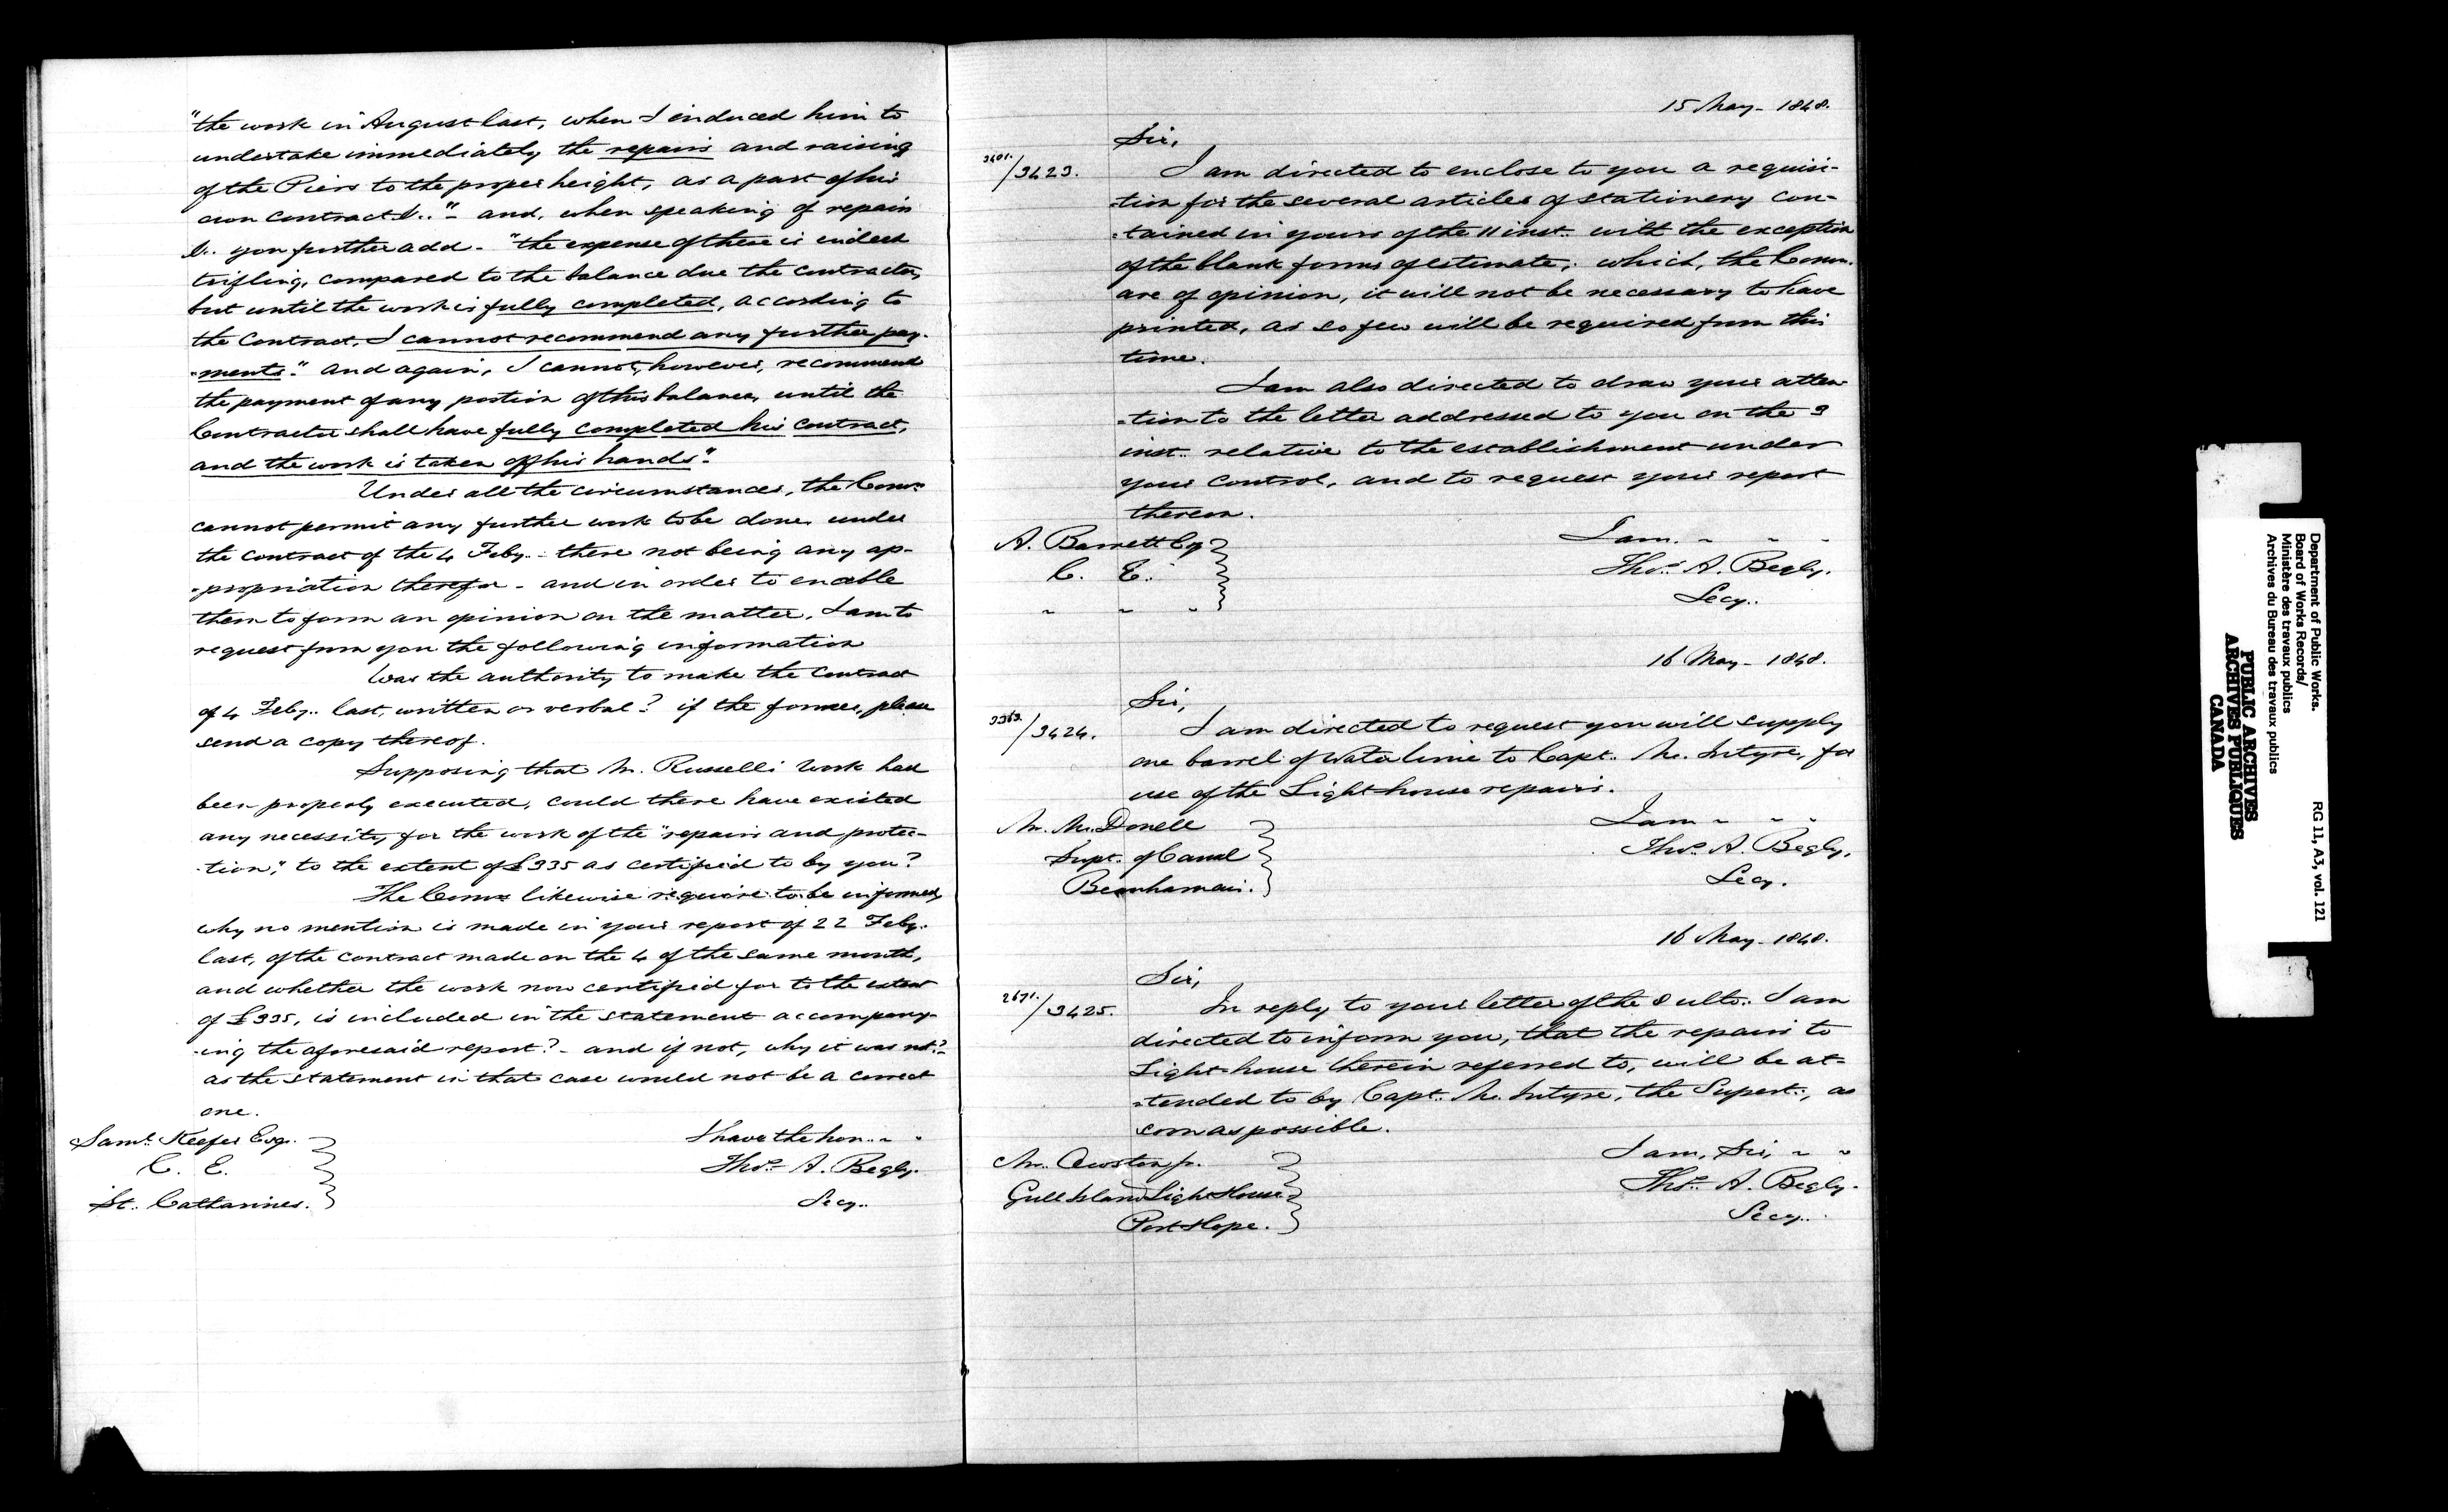 "the work in August last, when I induced him to
undertake immediately the repairs and raising
of the Piers to the proper height, as a part of his
own contract &.." - and, when speaking of repairs
&.. you further add - "the expense of these is indeed
trifling, compared to the balance due the contractor,
but until the work is fully completed, according to
the Contract, I cannot recommend any further pay-
-ments." and again, I cannot, however, recommend
the payment of any portion of this balance, until the
Contractor shall have fully completed his contract,
and the work is taken off his hands".
Under all the circumstances, the Comrs
cannot permit any further work to be done, under
the contract of the 4 Feby.. there not being any ap-
-propriation therefor - and in order to enable
them to form an opinion on the matter, I am to
request from you the following information
Was the authority to make the contract
of 4 Feby.. last, written or verbal? if the former, please
send a copy thereof.
Supposing that Mr. Russell's work had
been properly executed, could there have existed
any necessity for the work of the "repairs and protec-
-tion," to the extent of £335 as certified to by you?
The Comrs likewise require to be informed,
why no mention is made in your report of 22 Feby.
last, of the contract made on the 4 of the same month,
and whether the work now certified for to the extent
of £335, is included in the statement accompany-
-ing the aforesaid report? - and if not, why it was not?-
as the statement in that case would not be a correct
one.
I have the hon.. " "
Saml. Keefer Esq.
C. E.
St. Catharines.
Thos. A. Begly.
Secy..
15 May - 1848.
Sir,
3401./3423. I am directed to enclose to you a requisi-
-tion for the several articles of stationery con-
-tained in yours of the 11 inst. with the exception
of the blank forms of estimate; which, the Comrs.
are of opinion, it will not be necessary to have
printed, as so few will be required from this
time.
I am also directed to draw your atten-
-tion to the letter addressed to you on the 9
inst.. relative to the establishment under
your control, and to request your report
thereon.
A. Barrett Esq
C. E.
" " "
I am. " " "
Thos. A. Begly.
Secy..
16 May - 1848.
Sir,
3363./3424. I am directed to request you will supply
one barrel of Water lime to Capt. Mc.Intyre, for
use of the Light house repairs.
Mr. McDonell
Supt. of Canal
Beauharnois.
I am " " "
Thos. A. Begly,
Secy.
16 May - 1848.
Sir,
2671./3425. In reply to your letter of the 8 ulto. I am
directed to inform you, that the repairs to
Light-house therein referred to, will be at-
-tended to by Capt. Mc.Intyre, the Supert., as
soon as possible.
Gull Island Light House
Port Hope.
I am, Sir, " "
Thos. A. Begly.
Secy..
Department of Public Works.
Board of Works Records/
Ministère des travaux publics
Archives du Bureau des travaux publics
RG 11, A3, vol. 121
PUBLIC ARCHIVES
ARCHIVES PUBLIQUES
CANADA